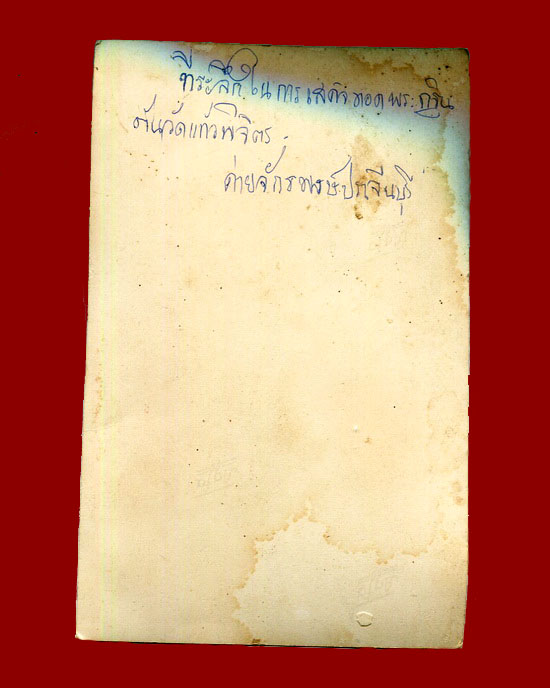 ที่ระลึกในการเสด็จทอดพระกฐิน
ต้นวัดแก้วพิจิตร.
ค่ายจักรพงษ์ปราจีนบุรี